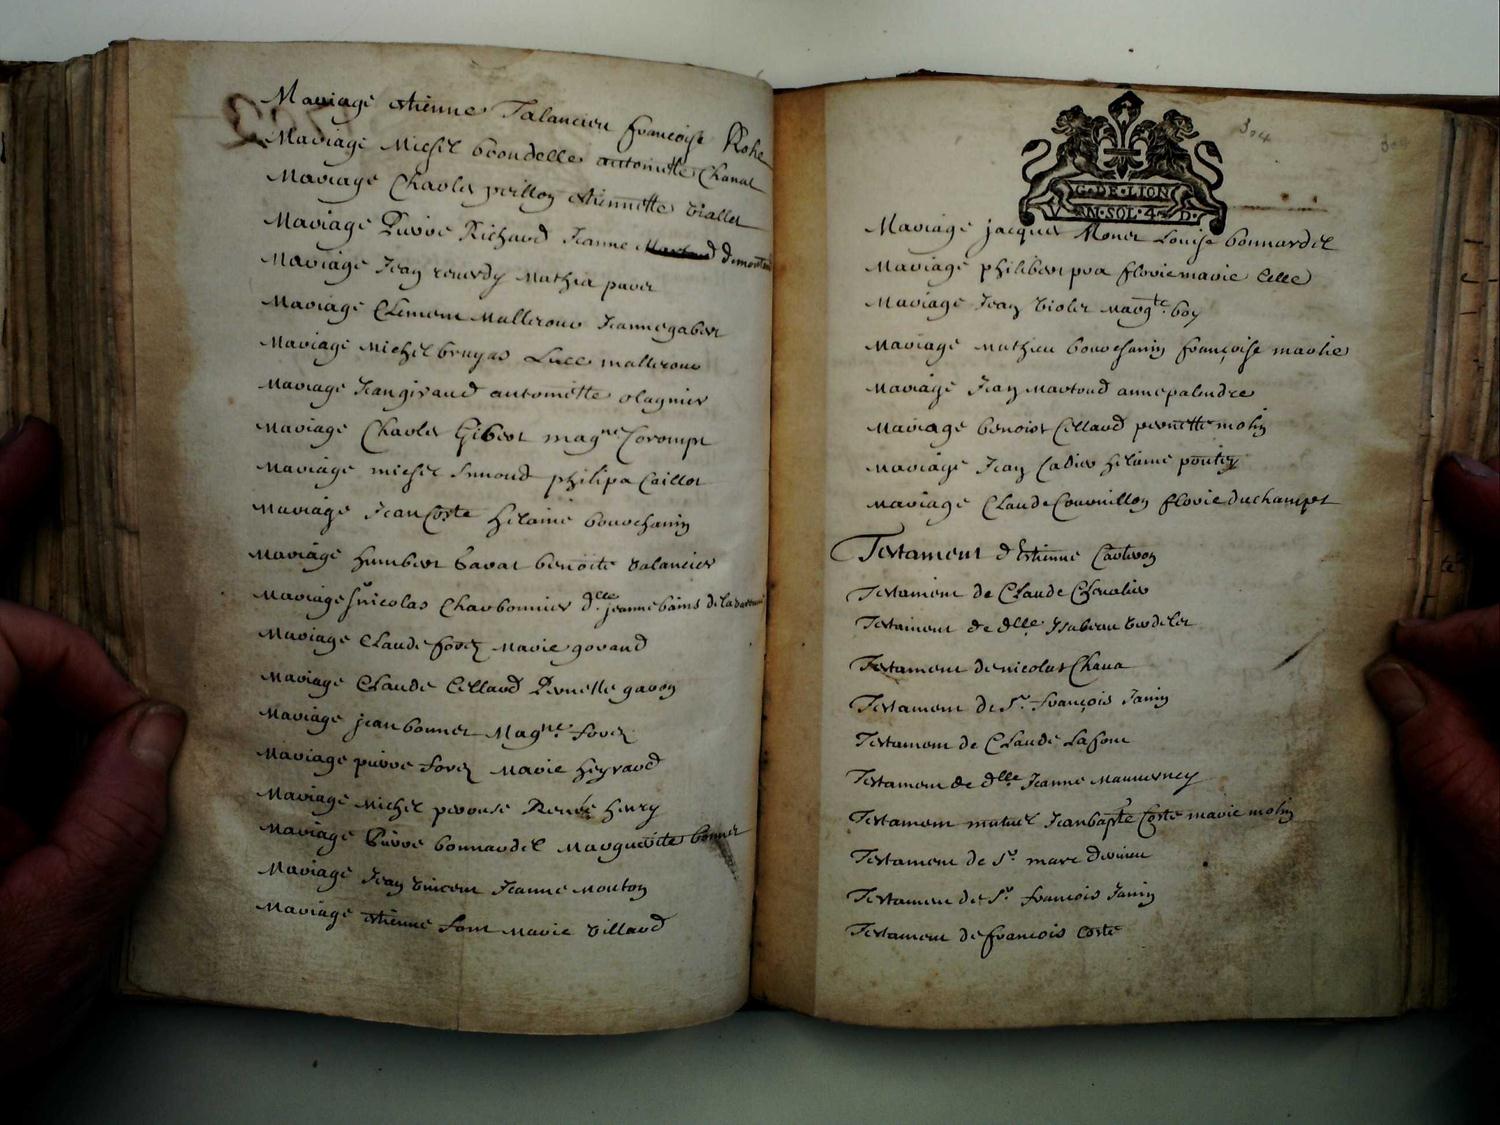 Mariage etienne Talancieu francoise Rohe
Mariage Michel brondelle antoinette Chanal
Mariage Charles perillon etiennette viallet
Mariage Pierre Richard Jeanne
Mariage Jean Mathia
Mariage Clement Mallerouv Jeanne gaber
Mariage Michel bruyas Luce mallerouv
Mariage Jean giraud antoinette olagnier
Mariage Charles Gibert magne Corompt
Mariage michel philipa Caillot
Mariage Jean Coste hilaine bourchanin
Mariage humbert benoite valancier
Mariage sr nicolas Charbonnier dlle jeanne bains de la
Mariage Claude forez Marie gorand
Mariage Claude Cellard Pernette gavon
Mariage jean bonnet Magne forez
Mariage pierre forez Marie heyraud
Mariage Michel perouse Renée henry
Mariage Pierre bonnardel Marguerite bonnet
Mariage Jean vincent Jeanne Mouton
Mariage etienne font Marie villard
304
G. DE. LION
VN. SOL. 4. D.
Mariage jacques Monet Louise bonnardel
Mariage philibert pra florie marie Celle
Mariage Jean violet Margte boy
Mariage Mathieu bourchanin françoise marlie
Mariage Jean Martoud anne palendre
Mariage benoist Cellard pernette molin
Mariage Jean Cadier hilaine
Mariage Claude Couvillon florie duchampt
Testament d'Estienne
Testament de Claude Chevalier
Testament de dlle Isabeau verdelet
Testament de nicolas Chava
Testament de Sr. françois Janin
Testament de Claude Lafont
Testament de dlle Jeanne
Testament mutuel Jean bapte Coste marie molin
Testament de Sr marc
Testament de Sr françois Janin
Testament de françois Coste